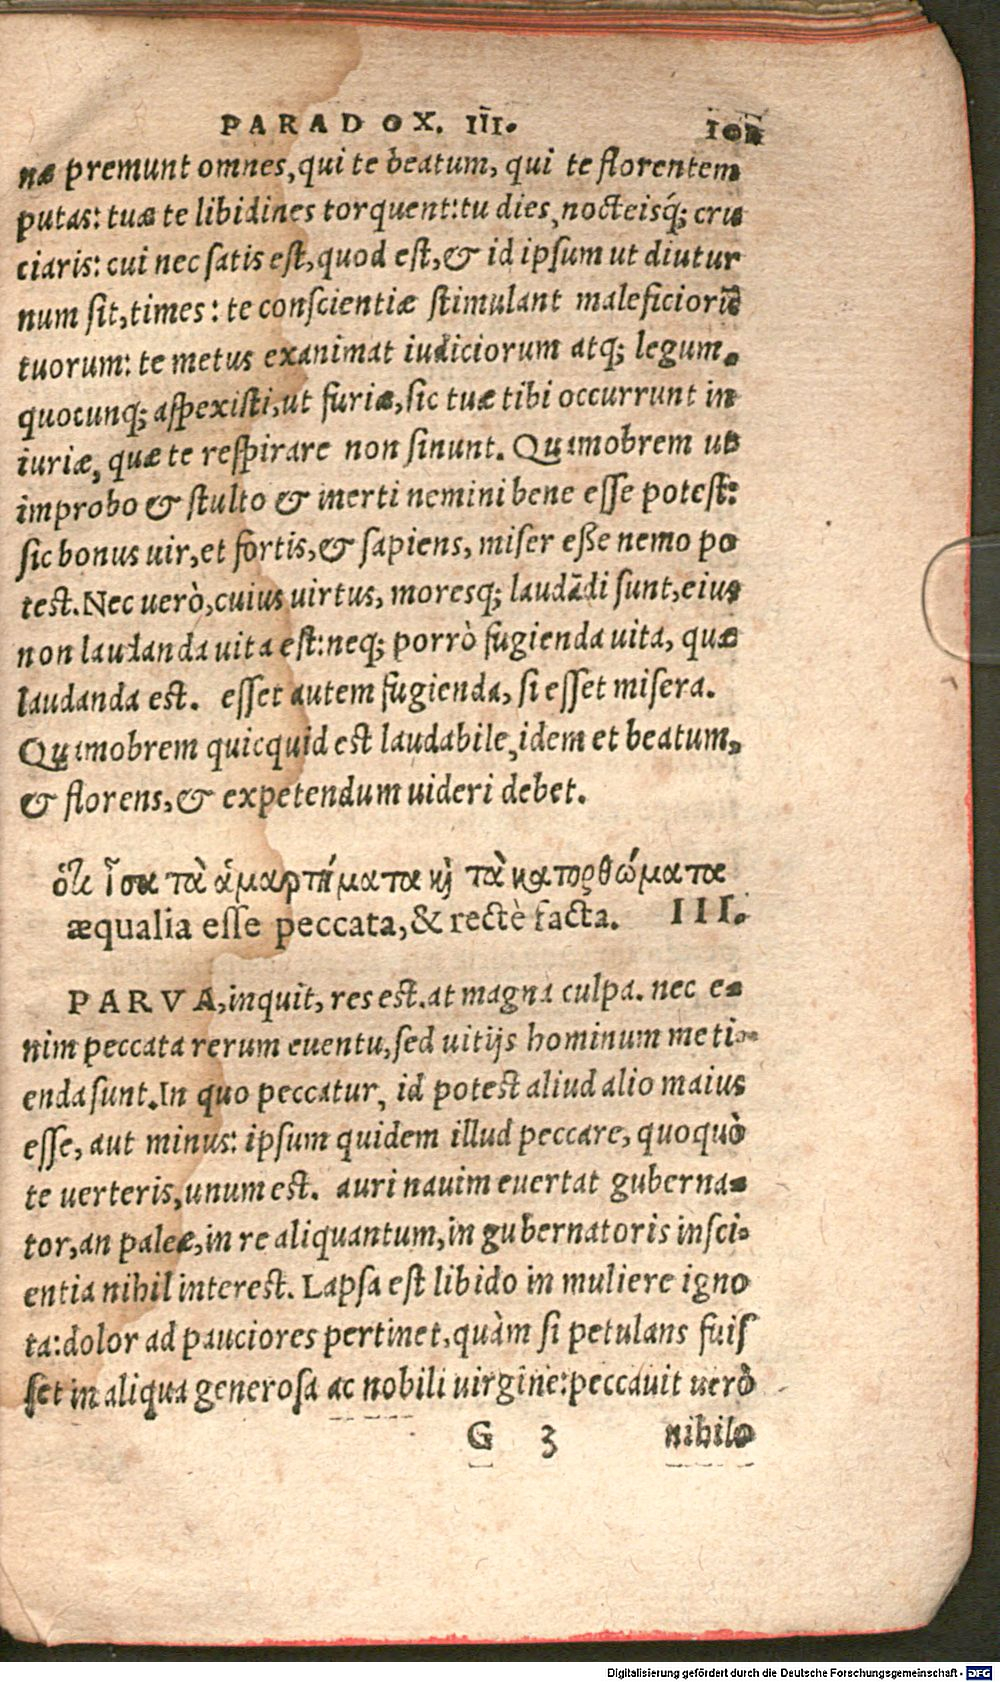 PARADOX. III. 101
næ premunt omnes, qui te beatum, qui te florentem
putas: tuæ te libidines torquent: tu dies, nocteisq́; cru
ciaris: cui nec satis est, quod est, & id ipsum ut diutur
num sit, times: te conscientiæ stimulant maleficiorũ
tuorum: te metus exanimat iudiciorum atq; legum.
quocunq; aspexisti, ut furiæ, sic tuæ tibi occurrunt in
iuriæ, quæ te respirare non sinunt. Quamobrem ut
improbo & stulto & inerti nemini bene esse potest:
sic bonus uir, et fortis, & sapiens, miser eße nemo po
test. Nec uerò, cuius uirtus, moresq; laudãdi sunt, eius
non laudanda uita est: neq; porrò fugienda uita, quæ
laudanda est. esset autem fugienda, si esset misera.
Quamobrem quicquid est laudabile, idem et beatum,
& florens, & expetendum uideri debet.
ὅτι ἴσα τὰ ἁμαρτήματα κ̀ τὰ κατορθώματα
æqualia esse peccata, & rectè facta. III.
PARVA, inquit, res est. at magna culpa. nec e-
nim peccata rerum euentu, sed uitijs hominum meti-
enda sunt. In quo peccatur, id potest aliud alio maius
esse, aut minus: ipsum quidem illud peccare, quoquò
te uerteris, unum est. auri nauim euertat guberna-
tor, an paleæ, in re aliquantum, in gubernatoris insci-
entia nihil interest. Lapsa est libido in muliere igno
ta: dolor ad pauciores pertinet, quàm si petulans fuis
set in aliqua generosa ac nobili uirgine: peccauit uerò
G 3 nihilo
Digitalisierung gefördert durch die Deutsche Forschungsgemeinschaft - DFG